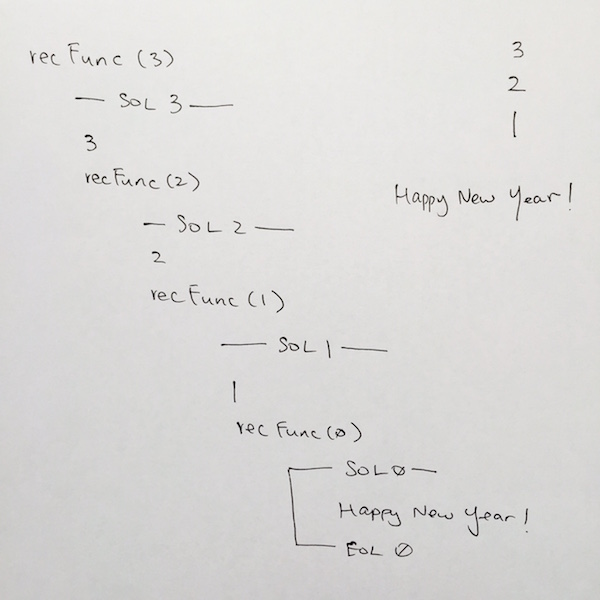 recFunc(3)
— SOL 3 —
3
recFunc(2)
— SOL 2 —
2
recFunc(1)
— SOL 1 —
1
recFunc(0)
— SOL 0 —
Happy New Year!
— EOL 0
3
2
1
Happy New Year!